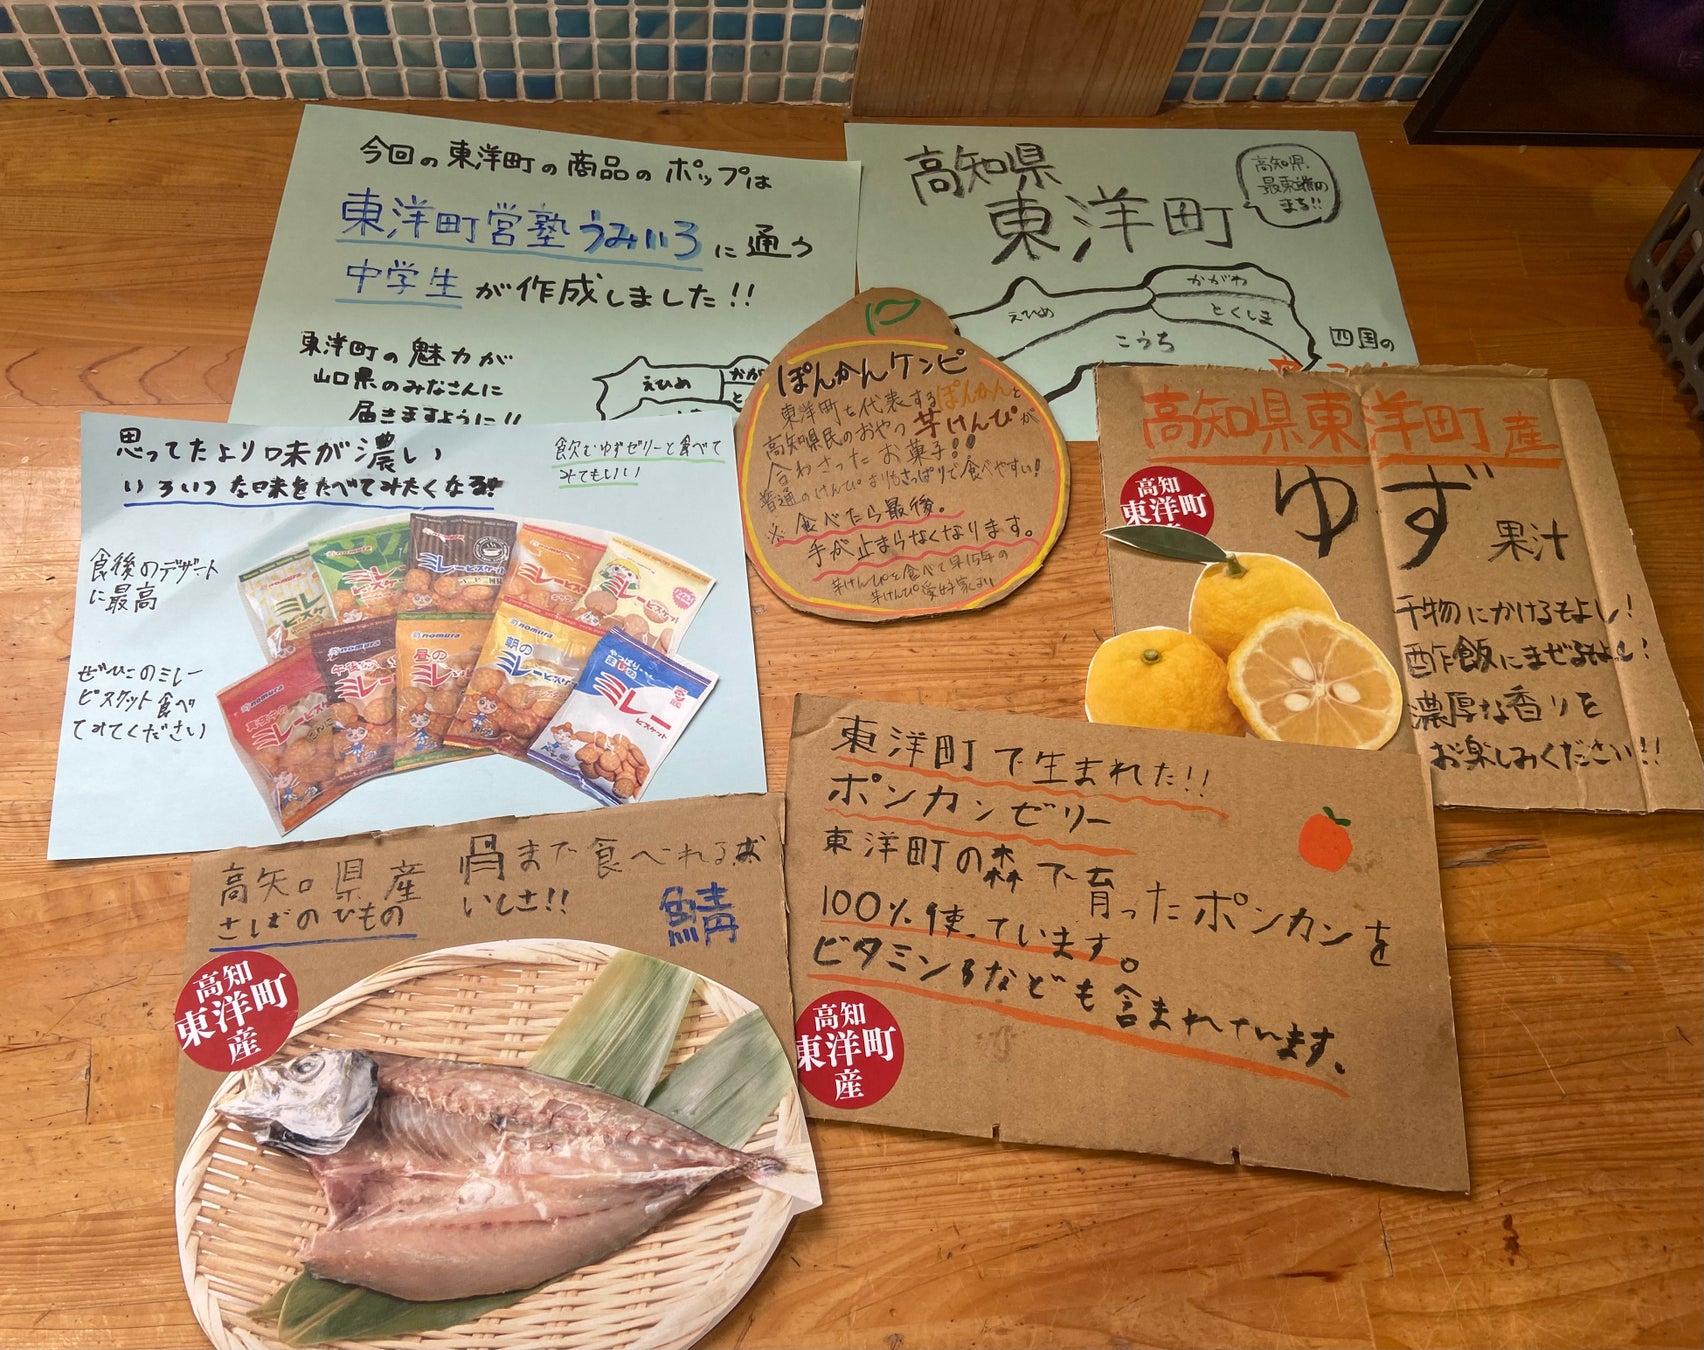 今回の東洋町の商品のポップは
東洋町営塾うみいろに通う
中学生が作成しました!!
東洋町の魅力が
山口県のみなさんに
届きますように!!
えひめ
かが
高知県
東洋町
高知県
最東端の
まち!!
かがわ
えひめ
とくしま
こうち
四国の
ぽんかんケンピ
東洋町を代表するぽんかんと
高知県民のおやつ芋けんぴが
合わさったお菓子!!
普通のけんぴよりもさっぱりで食べやすい!
※食べたら最後。
手が止まらなくなります。
芋けんぴを食べて早15年の
芋けんぴ愛好家より
高知県東洋町産
ゆず
果汁
高知
東洋町
干物にかけるもよし!
酢飯にまぜるもよし!
濃厚な香りを
お楽しみください!!
思ってたより味が濃い
いろいろな味をたべてみたくなる!
飲むゆずゼリーと食べて
みてもいい
食後のデザート
に最高
ぜひこのミレー
ビスケット食べ
てみてください
nomura
ミレー
ミレービスケット
nomura
昼の
ミレー
nomura
朝の
ミレー
ミレー
ビスケット
nomura
ミレー
東洋町で生まれた!!
ポンカンゼリー
東洋町の森で育ったポンカンを
100%使っています。
ビタミンBなども含まれています。
高知
東洋町
産
高知県産
さばのひもの
骨まで食べれるお
いしさ!!
鯖
高知
東洋町
産